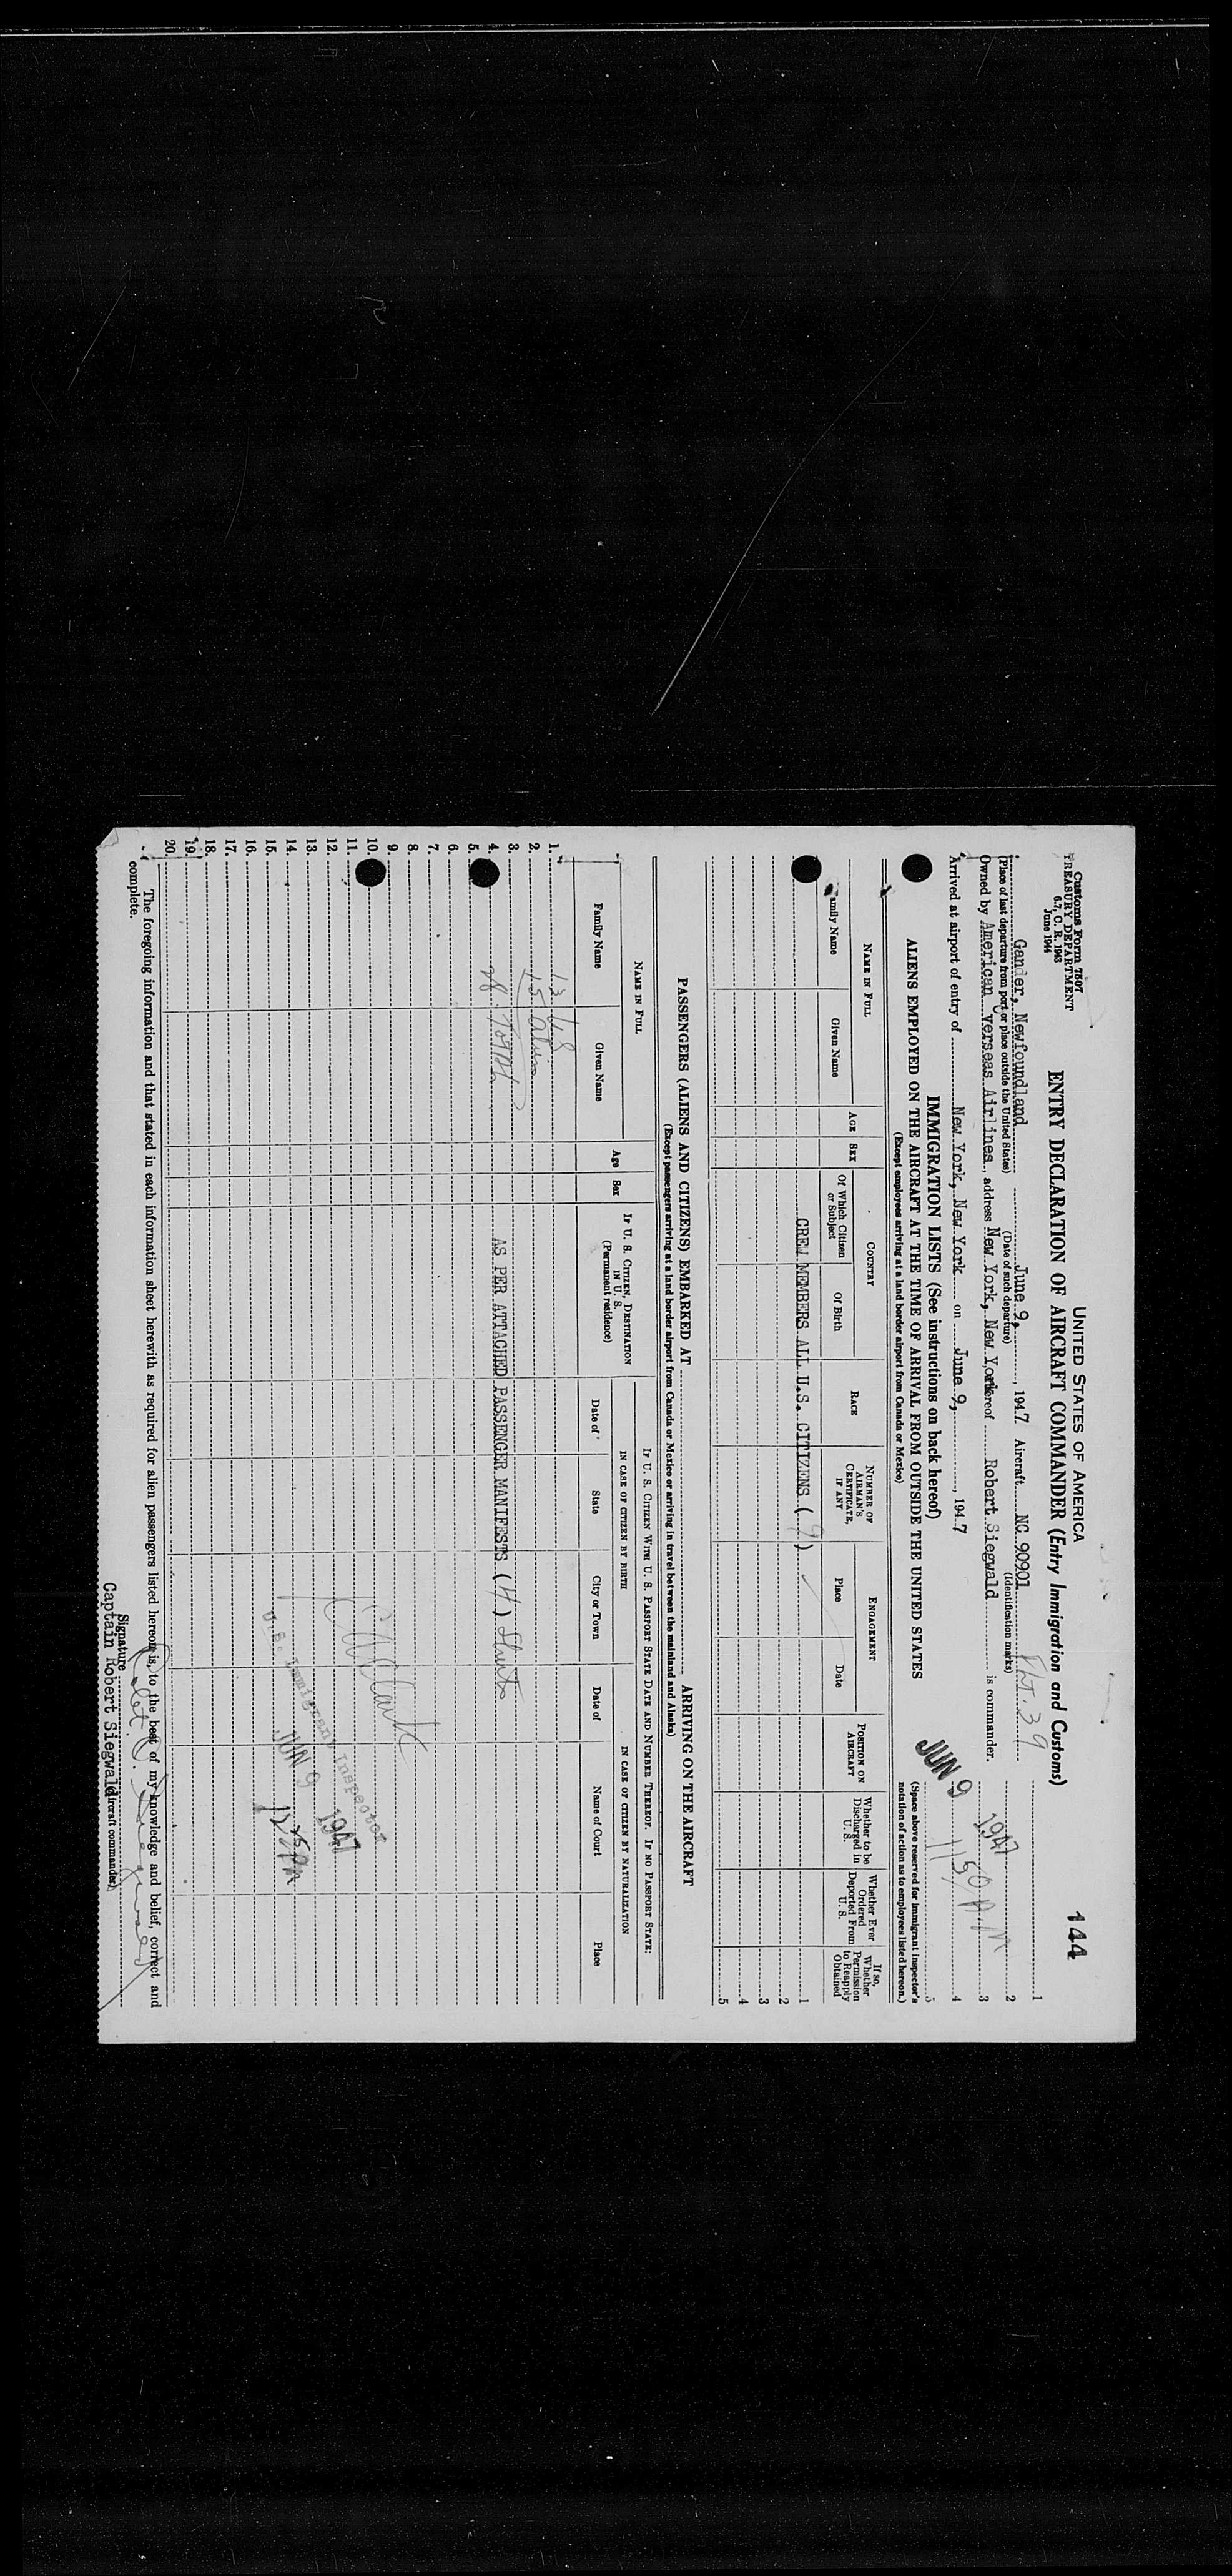 Customs Form 7507
TREASURY DEPARTMENT
6.7, C. R. 1943
June 1944
144
UNITED STATES OF AMERICA
ENTRY DECLARATION OF AIRCRAFT COMMANDER (Entry Immigration and Customs)
Flt. 39
Gander, Newfoundland June 9, 1947 Aircraft NC 90901 1
(Place of last departure from port or place outside the United States) (Date of such departure) (Identification marks) 2
Owned by American Overseas Airlines, address New York, New York hereof Robert Siegwald is commander. 3
Arrived at airport of entry of New York, New York on June 9, 1947 4
JUN 9 1947
11 50 A.M
5
IMMIGRATION LISTS (See instructions on back hereof)
(Space above reserved for immigrant inspector's notation of action as to employees listed hereon.)
ALIENS EMPLOYED ON THE AIRCRAFT AT THE TIME OF ARRIVAL FROM OUTSIDE THE UNITED STATES
(Except employees arriving at a land border airport from Canada or Mexico)
NAME IN FULL
Family Name
Given Name
AGE
SEX
COUNTRY
Of Which Citizen or Subject
Of Birth
RACE
NUMBER OF AIRMAN'S CERTIFICATE, IF ANY
ENGAGEMENT
Place
Date
POSITION ON AIRCRAFT
Whether to be Discharged in U. S.
Whether Ever Ordered Deported From U. S.
If so, Whether Permission to Reapply Obtained
CREW MEMBERS ALL U.S. CITIZENS ( 9 ) 1
2
3
4
5
PASSENGERS (ALIENS AND CITIZENS) EMBARKED AT ARRIVING ON THE AIRCRAFT
(Except passengers arriving at a land border airport from Canada or Mexico or arriving in travel between the mainland and Alaska)
NAME IN FULL
Family Name
Given Name
Age
Sex
IF U. S. CITIZEN, DESTINATION IN U. S.
(Permanent residence)
IF U. S. CITIZEN WITH U. S. PASSPORT STATE DATE AND NUMBER THEREOF. IF NO PASSPORT STATE:
IN CASE OF CITIZEN BY BIRTH
Date of
State
City or Town
IN CASE OF CITIZEN BY NATURALIZATION
Date of
Name of Court
Place
1. 13 US
2. 15 Aliens
3.
4. 28 Total AS PER ATTACHED PASSENGER MANIFESTS (4) Sheets
5.
6.
7.
8.
9.
10.
11.
12.
13.
14.
15.
16.
17.
18.
19.
20.
U.S. Immigrant Inspector
JUN 9 1947
12 25 PM
The foregoing information and that stated in each information sheet herewith as required for alien passengers listed hereon is, to the best of my knowledge and belief, correct and
complete.
Signature
Captain Robert Siegwald
(Aircraft commander)